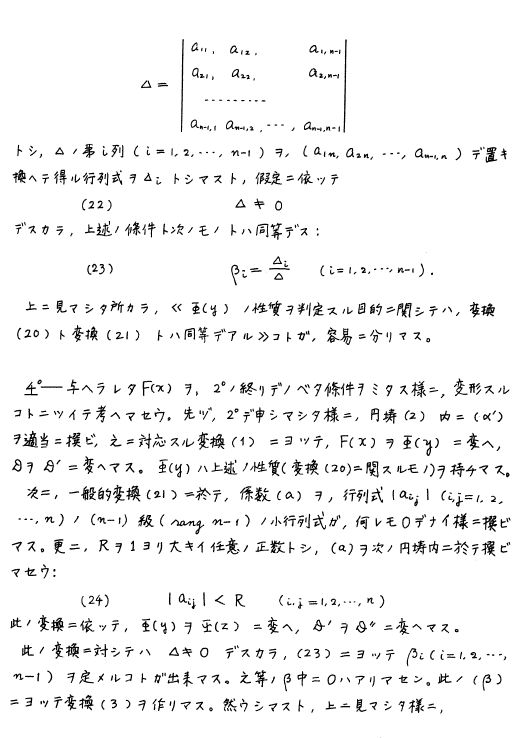 Δ = | a₁₁, a₁₂, a₁,ₙ₋₁ |
a₂₁, a₂₂, a₂,ₙ₋₁
----------
aₙ₋₁,₁ aₙ₋₁,₂, ⋯, aₙ₋₁,ₙ₋₁
トシ, Δノ第i列 (i=1, 2, ⋯, n-1) ヲ, (a₁ₙ, a₂ₙ, ⋯, aₙ₋₁,ₙ) デ置キ
換ヘテ得ル行列式ヲ Δᵢ トシマスト, 假定ニ依ッテ
(22) Δ ≠ 0
デスカラ, 上述ノ條件ト次ノモノトハ同等デス:
(23) βᵢ = Δᵢ/Δ (i=1, 2, ⋯, n-1).
上ニ見マシタ所カラ, ≪ Φ(y) ノ性質ヲ判定スル目的ニ関シテハ, 変換
(20) ト変換 (21) トハ同等デアル≫コトガ, 容易ニ分リマス。
4°— 与ヘラレタ F(x) ヲ, 2°ノ終リデノベタ條件ヲミタス様ニ, 変形スル
コトニツイテ考ヘマセウ。先ヅ, 2°デ申シマシタ様ニ, 円墻 (2) 内ニ (α′)
ヲ適当ニ撰ビ, 之ニ対応スル変換 (1) ニヨッテ, F(x) ヲ Φ(y) ニ変ヘ,
𝒟ヲ 𝒟′ ニ変ヘマス。 Φ(y) ハ上述ノ性質(変換(20)ニ関スルモノ)ヲ持チマス。
次ニ, 一般的変換 (21) ニ於テ, 係数 (a) ヲ, 行列式 |aᵢⱼ| (i,j=1, 2,
⋯, n) ノ (n-1) 級 (rang n-1) ノ小行列式ガ, 何レモ0デナイ様ニ撰ビ
マス。更ニ, R ヲ 1 ヨリ大キイ任意ノ正数トシ, (a) ヲ次ノ円墻内ニ於テ撰ビ
マセウ:
(24) |aᵢⱼ| < R (i, j = 1, 2, ⋯, n)
此ノ変換ニ依ッテ, Φ(y) ヲ Ψ(z) ニ変ヘ, 𝒟′ ヲ 𝒟″ ニ変ヘマス。
此ノ変換ニ対シテハ Δ≠0 デスカラ, (23) ニヨッテ βᵢ (i=1, 2, ⋯,
n-1) ヲ定メルコトガ出来マス。之等ノβ中ニ0ハアリマセン。此ノ (β)
ニヨッテ変換 (3) ヲ作リマス。然ウシマスト, 上ニ見マシタ様ニ,